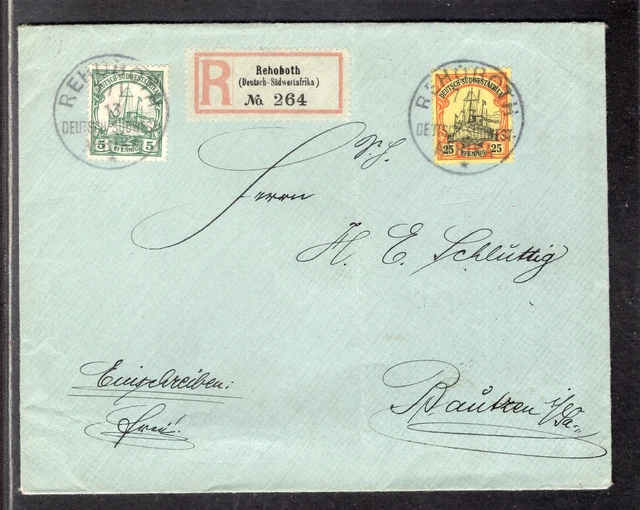 REHOBOTH
DEUTSCH-SÜDW
DEUTSCH-SÜDWESTAFRIKA
5 PFENNIG 5
R
Rehoboth
(Deutsch-Südwestafrika)
No. 264
REHOBOTH
DEUTSCH-SÜDWESTAFRIKA
25 PFENNIG 25
S. H.
Herrn
H. E. Schluttig
Einschreiben:
frei!
Bautzen i/Sa.